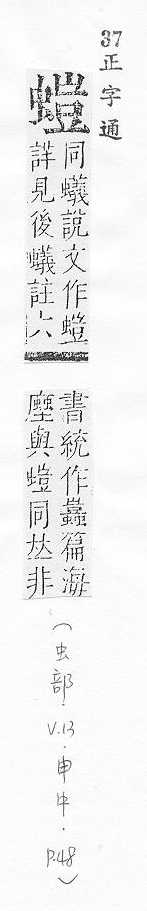 37 正字通
螘
同蟻說文作螘
詳見後蟻註六
書統作篇海
與螘同𠀤非
(虫部．V.13．申中．P.48)